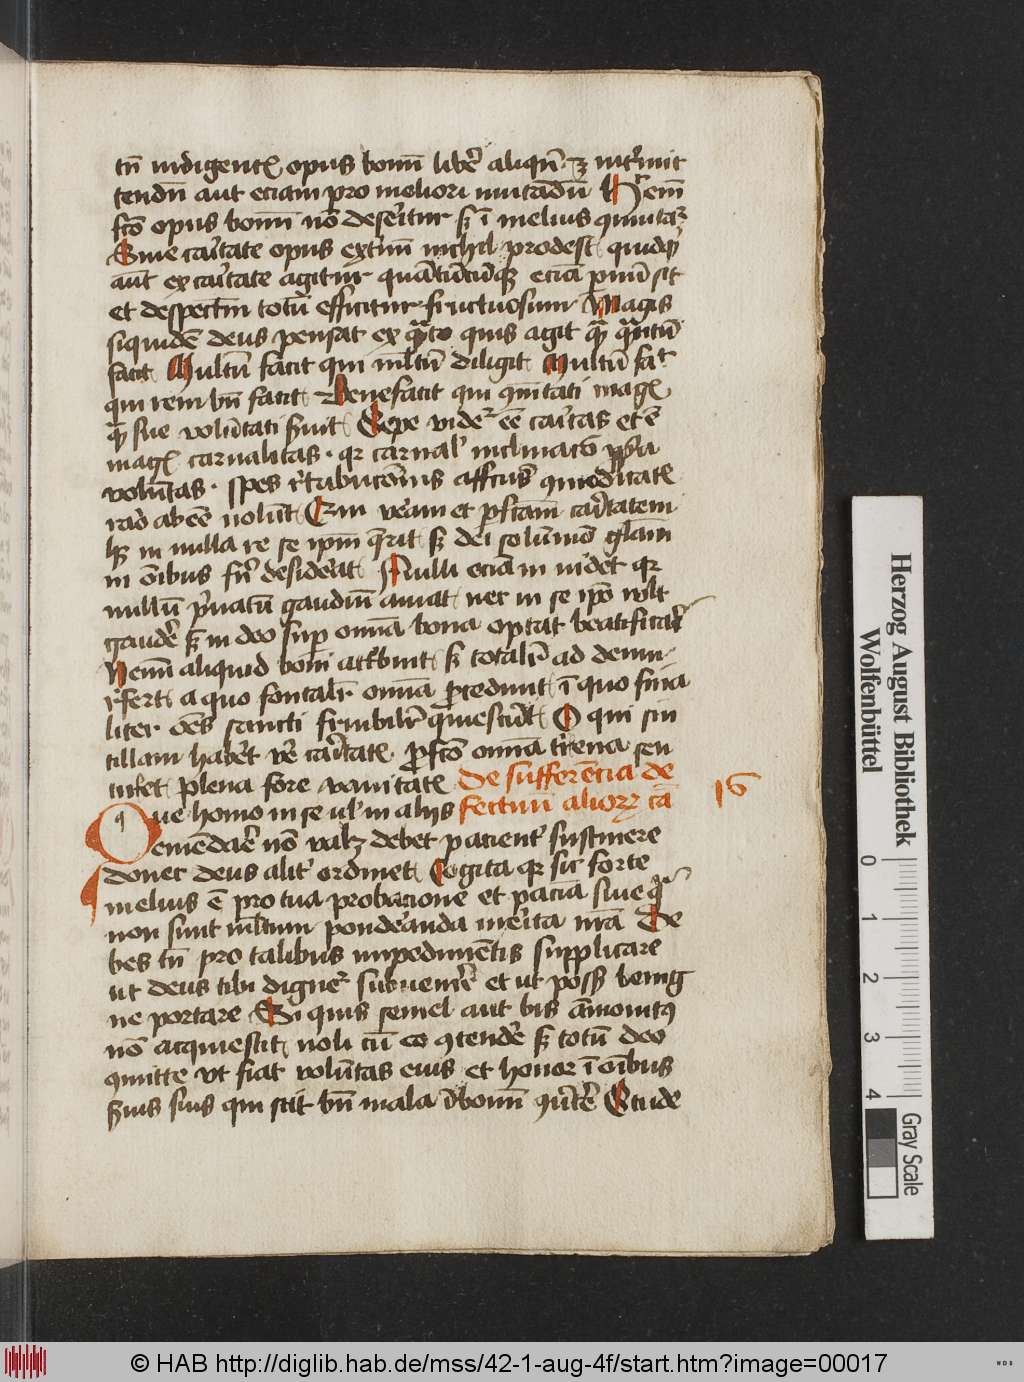 tn̄ indigent(is) opus bonū lib(er)e aliqn̄ 
tendn̄ aut eciam pro meliori mutandū H(oc) em̄
fc̄o opus bonū nō des(er)itur s(ed) ī melius 
Sine ca(r)itate opus ext(er)nū nichil prodest quidq(ui)d
aut̄ ex ca(r)itate agitur quātūcūq(ue) eciā p(ar)uū sit
et despectū totū efficitur fructuosum Magis
siquidē deus pensat ex q(ua)nto quis agit q(ua)m q(ua)ntū
facit Multū facit qui m(u)ltū diligit Multū fac(it)
qui rem bn̄ facit Benefacit qui 
q(ua)m sue volūtati s(er)uit Sepe vide(tur) eē ca(r)itas et ē
mag(is) carnalitas · q(uia) carnal(is) inclinacō p(ro)p(r)ia
volūtas · spes r(e)tribucōnis affc(t)us 
raro abeē volūt Qui veram et p(er)f(e)c(t)am ca(r)itatem
h(abe)t in nulla re se ip(su)m q(ue)rit s(ed) dei solūmō gl(ori)am
in ōibus f(ier)i desid(er)at Nulli eciā inuidet q(uia)
nullū p(r)iuatū gaudiū amat nec in se ip(s)o v(u)lt
gaud(er)e s(ed) in deo sup(er) om̄ia bona optat beatifica(r)i
Nemī aliquid boni att(ri)buit s(ed) total(ite)r ad deum
r(e)fert a quo fontal(ite)r om̄ia p(ro)cedunt ī quo fina
liter ōes sancti fruibil(ite)r q(ui)escūt O qui sin
tillam hab(er)et v(er)e ca(r)itat(is) p(ro)f(e)c(t)o om̄ia t(er)rena sen
tiret plena fore vanitat(is) De sufferencia de
Que homo in se u(e)l in aliis fectuū alior(um) ca(m)
16
emēda(r)e nō valet debet pacient(er) sustinere
donec deus alit(er) ordinet Cogita q(uia) sic forte
melius ē pro tua probacione et paciā sine q(ua)
non sunt m(u)ltum pond(er)anda me(r)ita n(ost)ra De
bes tn̄ pro talibus impedimētis supplicare
ut deus tibi digne(tur) subueni(r)e et ut poss(is) benig
ne portare Si quis semel aut bis āmonitus
nō acquiescit noli cū eo (con)tend(er)e s(ed) totū deo
(com)mitte vt fiat volūtas eius et honor ī ōibus
s(er)uis suis qui scit bn̄ mala ī bonū (con)u(er)t(er)e Stude
Herzog August Bibliothek
Wolfenbüttel
0 1 2 3 4
Gray Scale
© HAB http://diglib.hab.de/mss/42-1-aug-4f/start.htm?image=00017